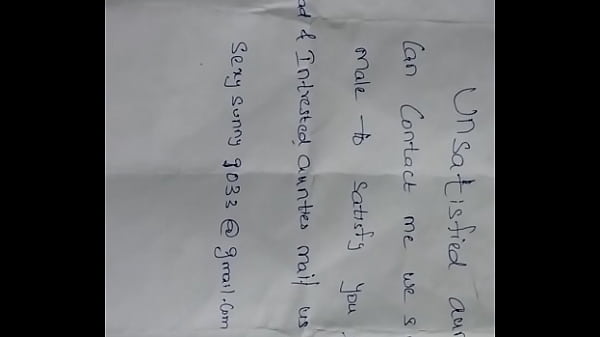 Unsatisfied aun
Can Contact me we s
male to satisfy you.
ad & Intrested aunties mail us
Sexy sunny 9033 @ gmail.com